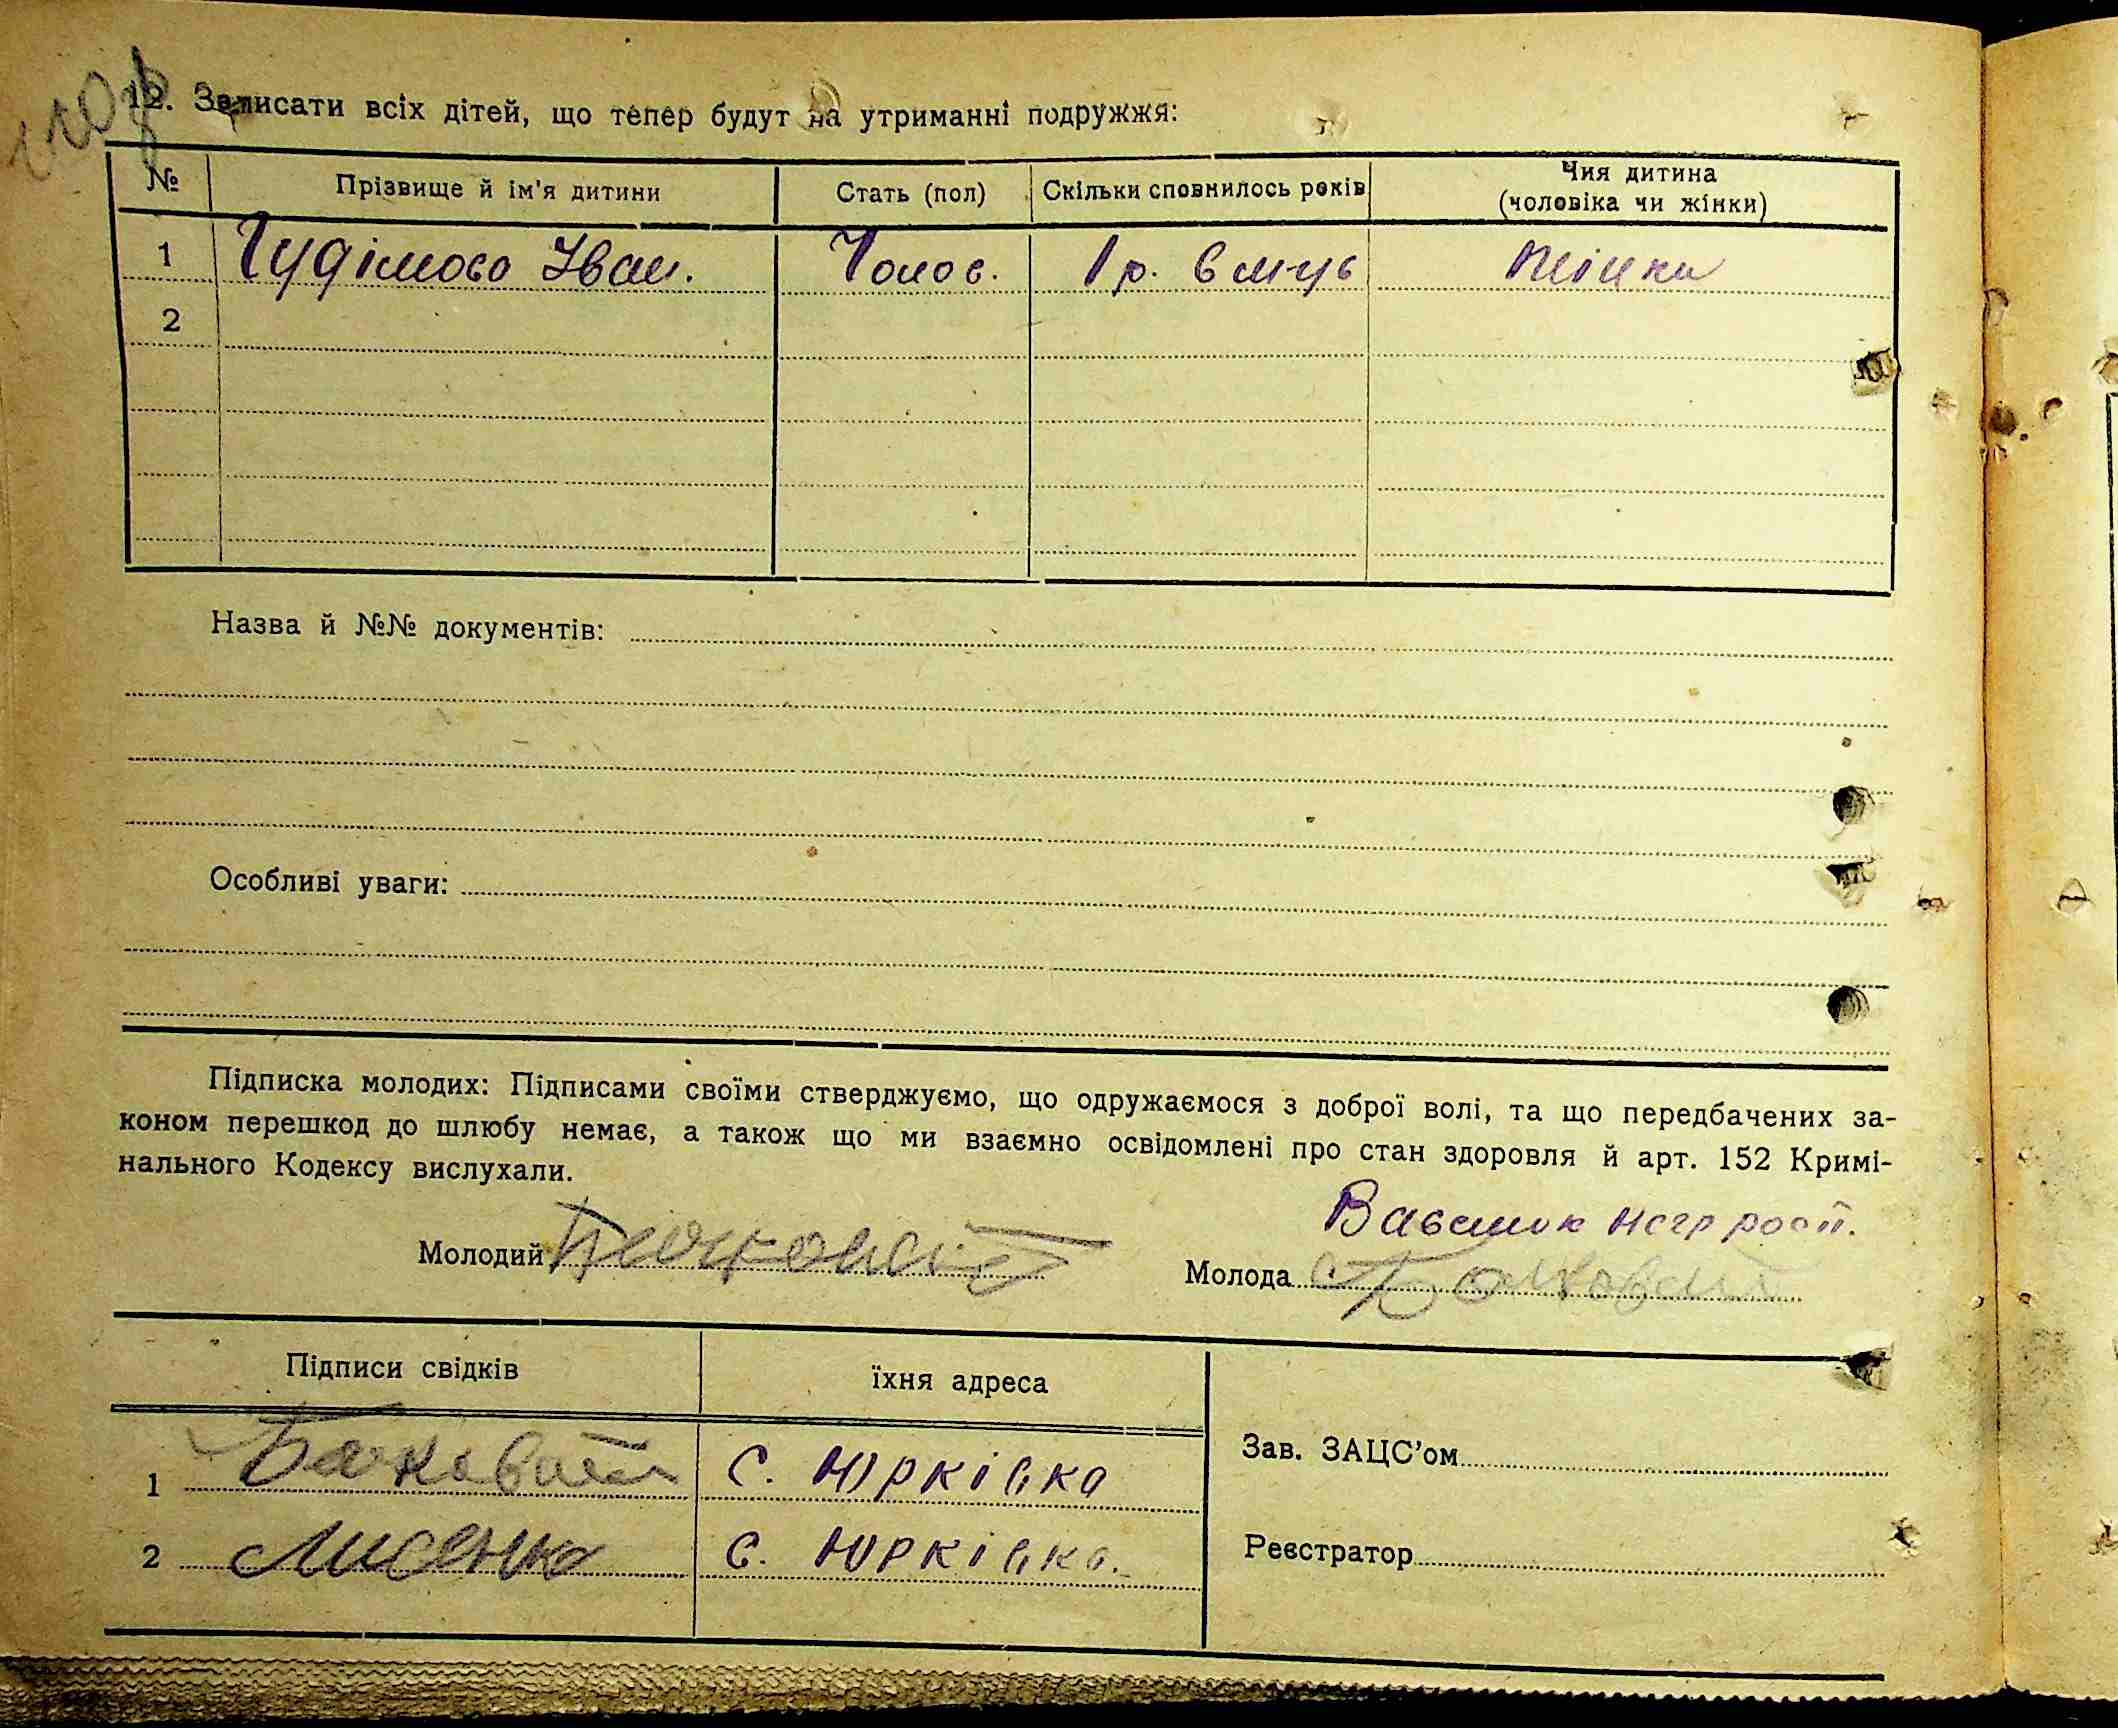 12. Записати всіх дітей, що тепер будут на утриманні подружжя:
№ Прізвище й ім'я дитини Стать (пол) Скільки сповнилось років Чия дитина (чоловіка чи жінки)
1 Гудімово Іван. Чолов. 1 р. 6 м-ць Жінки
2
Назва й №№ документів:
Особливі уваги:
Підписка молодих: Підписами своїми стверджуємо, що одружаємося з доброї волі, та що передбачених за-
коном перешкод до шлюбу немає, а також що ми взаємно освідомлені про стан здоровля й арт. 152 Кримі-
нального Кодексу вислухали.
Молодий
Молода
Підписи свідків їхня адреса
Зав. ЗАЦС'ом
1 с. Юрківка
2 Лисенко с. Юрківка.
Реєстратор